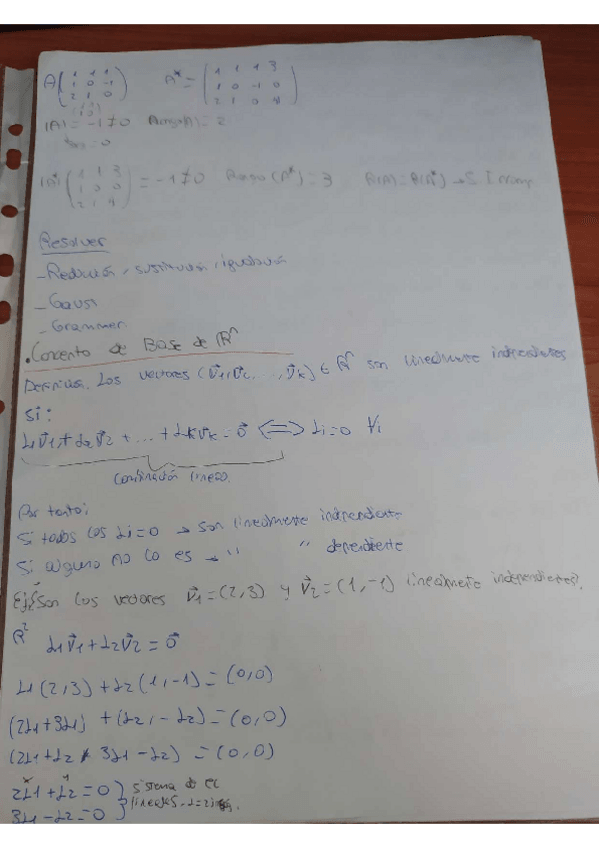 A ( 1 1 1 A* = ( 1 1 1 3
1 0 -1 1 0 -1 0
2 1 0 ) 2 1 0 4 )
|A| = -1 ≠ 0 Rango(A) = 2
= 0
|A*| ( 1 1 3
1 0 0
2 1 4 ) = -1 ≠ 0 Rango (A*) = 3 R(A) = R(A*) → S. Incomp
Resolver
- Reducción, sustitución, igualación
- Gauss
- Grammer
• Concepto de Base de ℝⁿ
Definición. Los vectores (v⃗1, v⃗2, ..., v⃗k) ∈ ℝⁿ son linealmente independientes
si:
λ1v⃗1 + λ2v⃗2 + ... + λkv⃗k = 0⃗ ⟺ λi = 0 ∀i
Combinación lineal
Por tanto:
Si todos los λi = 0 → son linealmente independiente
Si alguno no lo es → " " dependiente
Ej: ¿Son los vectores v⃗1 = (2,3) y v⃗2 = (1,-1) linealmente independientes?
ℝ² λ1v⃗1 + λ2v⃗2 = 0⃗
λ1 (2,3) + λ2 (1,-1) = (0,0)
(2λ1 + 3λ1) + (λ2, -λ2) = (0,0)
(2λ1 + λ2, 3λ1 - λ2) = (0,0)
2λ1 + λ2 = 0 } sistema de ec
3λ1 - λ2 = 0 } lineales